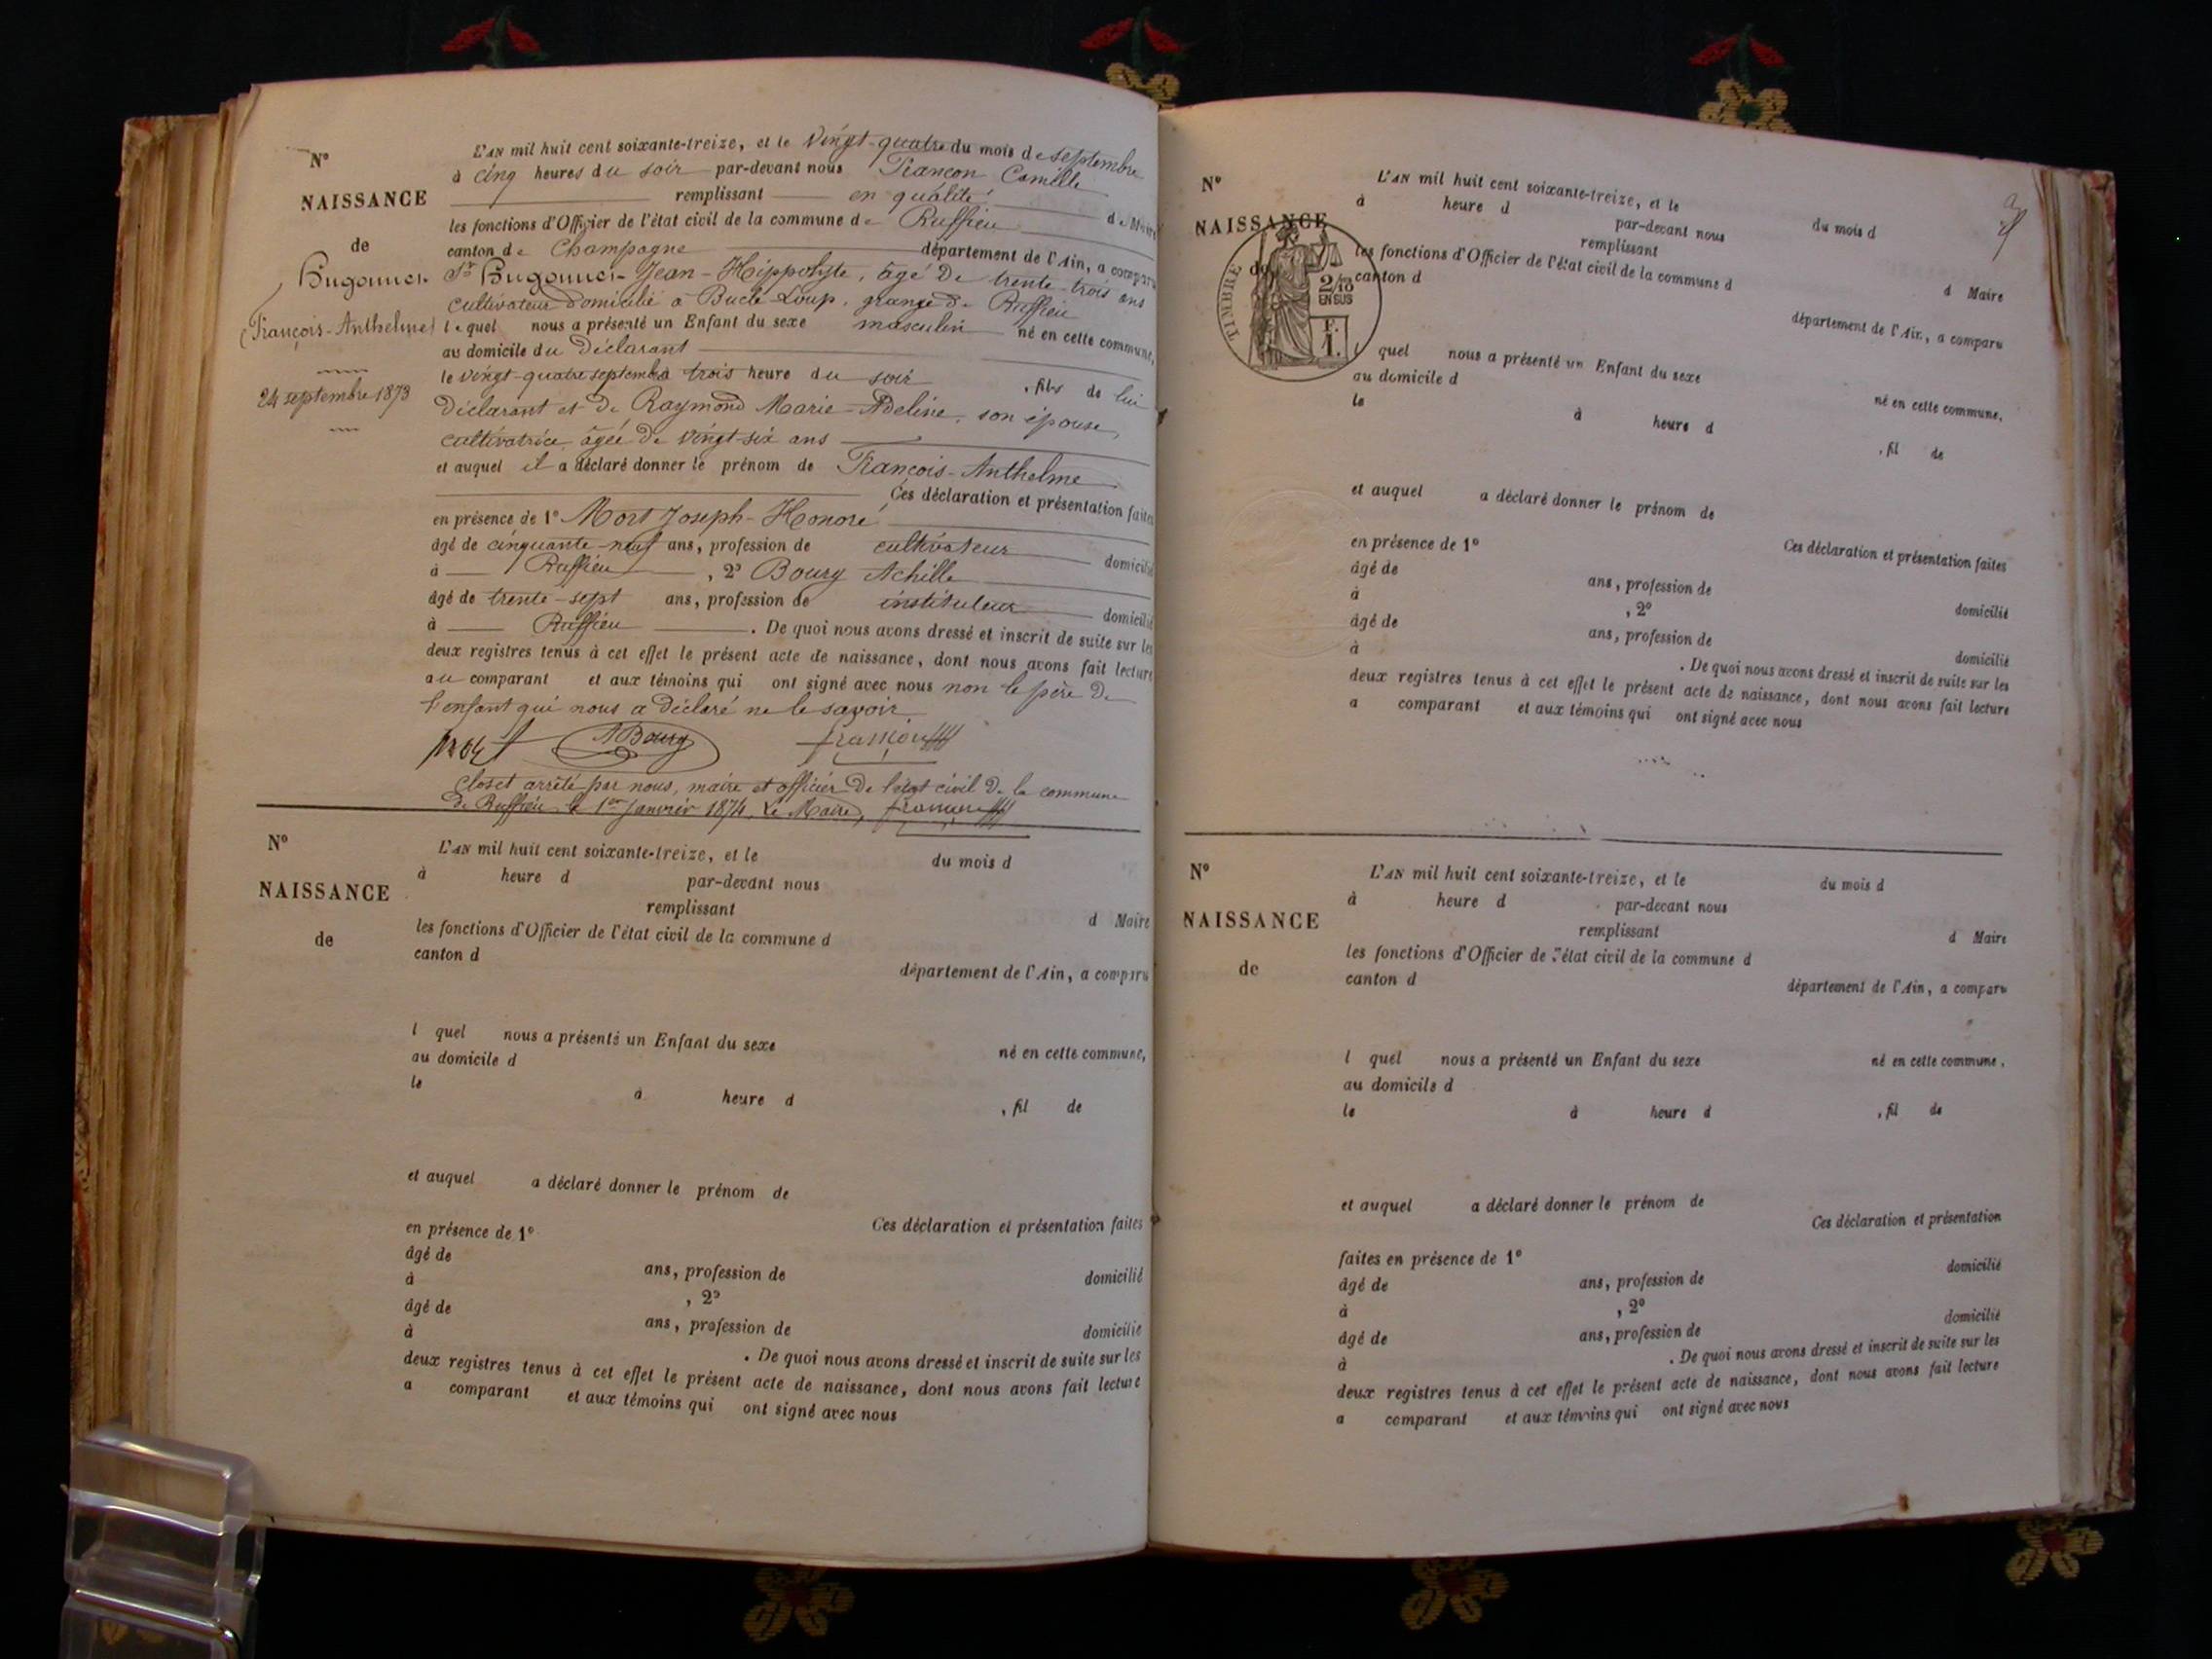 N°
NAISSANCE
de
Hugonnier
(François-Anthelme)
24 septembre 1873
L'AN mil huit cent soixante-treize, et le vingt-quatre du mois de septembre
à cinq heures du soir par-devant nous Francon Camille
remplissant en qualité de Maire
les fonctions d'Officier de l'état civil de la commune de Ruffieu
canton de Champagne département de l'Ain, a comparu
Sr Hugonnier Jean-Hippolyte, âgé de trente-trois ans
cultivateur domicilié à Bucle Loup, grange de Ruffieu
lequel nous a présenté un Enfant du sexe masculin né en cette commune,
au domicile du déclarant
le vingt-quatre septemb à trois heure du soir , fils de lui
déclarant et de Raymond Marie-Adeline, son épouse,
cultivatrice âgée de vingt-six ans
et auquel il a déclaré donner le prénom de François-Anthelme
Ces déclaration et présentation faites
en présence de 1° Mort Joseph-Honoré
âgé de cinquante-neuf ans, profession de cultivateur domicilié
à Ruffieu , 2° Bourg Achille
âgé de trente-sept ans, profession de instituteur domicilié
à Ruffieu . De quoi nous avons dressé et inscrit de suite sur les
deux registres tenus à cet effet le présent acte de naissance, dont nous avons fait lecture
au comparant et aux témoins qui ont signé avec nous non le père de
l'enfant qui nous a déclaré ne le savoir
Mort ABourg francon
Clos et arrêté par nous, maire et officier de l'état civil de la commune
de Ruffieu le 1er Janvier 1874, Le Maire, francon
N°
NAISSANCE
de
L'AN mil huit cent soixante-treize, et le du mois d
à heure d par-devant nous
remplissant d Maire
les fonctions d'Officier de l'état civil de la commune d
canton d département de l'Ain, a comparu
l quel nous a présenté un Enfant du sexe né en cette commune,
au domicile d
le à heure d , fil de
et auquel a déclaré donner le prénom de
Ces déclaration et présentation faites
en présence de 1°
âgé de ans, profession de domicilié
à , 2°
âgé de ans, profession de domicilié
à . De quoi nous avons dressé et inscrit de suite sur les
deux registres tenus à cet effet le présent acte de naissance, dont nous avons fait lecture
a comparant et aux témoins qui ont signé avec nous
N°
NAISSANCE
de
TIMBRE
2/10
EN SUS
F.
1.
L'AN mil huit cent soixante-treize, et le du mois d
à heure d par-devant nous
remplissant d Maire
les fonctions d'Officier de l'état civil de la commune d
canton d département de l'Ain, a comparu
l quel nous a présenté un Enfant du sexe né en cette commune,
au domicile d
le à heure d , fil de
et auquel a déclaré donner le prénom de
Ces déclaration et présentation faites
en présence de 1°
âgé de ans, profession de domicilié
à , 2°
âgé de ans, profession de domicilié
à . De quoi nous avons dressé et inscrit de suite sur les
deux registres tenus à cet effet le présent acte de naissance, dont nous avons fait lecture
a comparant et aux témoins qui ont signé avec nous
N°
NAISSANCE
de
L'AN mil huit cent soixante-treize, et le du mois d
à heure d par-devant nous
remplissant d Maire
les fonctions d'Officier de l'état civil de la commune d
canton d département de l'Ain, a comparu
l quel nous a présenté un Enfant du sexe né en cette commune,
au domicile d
le à heure d , fil de
et auquel a déclaré donner le prénom de
Ces déclaration et présentation
faites en présence de 1° domicilié
âgé de ans, profession de
à , 2° domicilié
âgé de ans, profession de
à . De quoi nous avons dressé et inscrit de suite sur les
deux registres tenus à cet effet le présent acte de naissance, dont nous avons fait lecture
a comparant et aux témoins qui ont signé avec nous